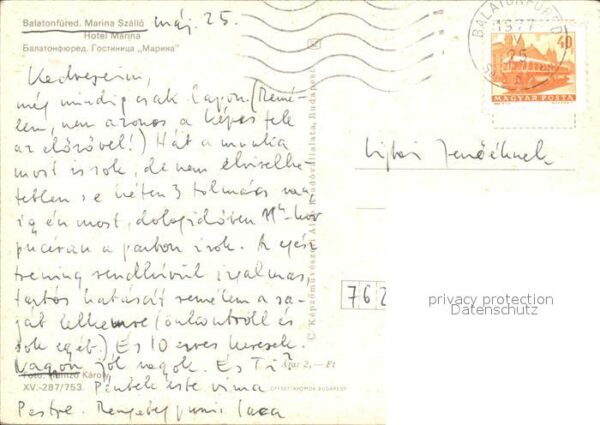 Balatonfüred. Marina Szálló máj. 25.
Hotel Marina
Балатонфюред. Гостиница „Марина"
Kedveseim,
még mindig csak lapon. (Remé-
lem, nem azonos a képes fele
az előzővel!) Hát a munka
most is sok, de nem elviselhe-
tetlen s e héten 3 tolmács van
így én most, dologidőben 11h-kor
a parton írok. Az egész
tréning rendkívül izgalmas,
tartós hatását remélem a sa-
ját lelkemre (önkontroll és
sok egyéb.) És 10 éves
Nagyon jól vagyok. És Ti?
Foto: Károly
XV.-287/753. Péntek este vissza
Pestre. Rengeteg puszi
C Képzőművészeti Alap Kiadóvállalata, Budapest
Ára: 2,— Ft
OFFSET-NYOMDA BUDAPEST
BALATONFÜRED
1977 V 25
40
MAGYAR POSTA
Jenőéknek
762
privacy protection
Datenschutz